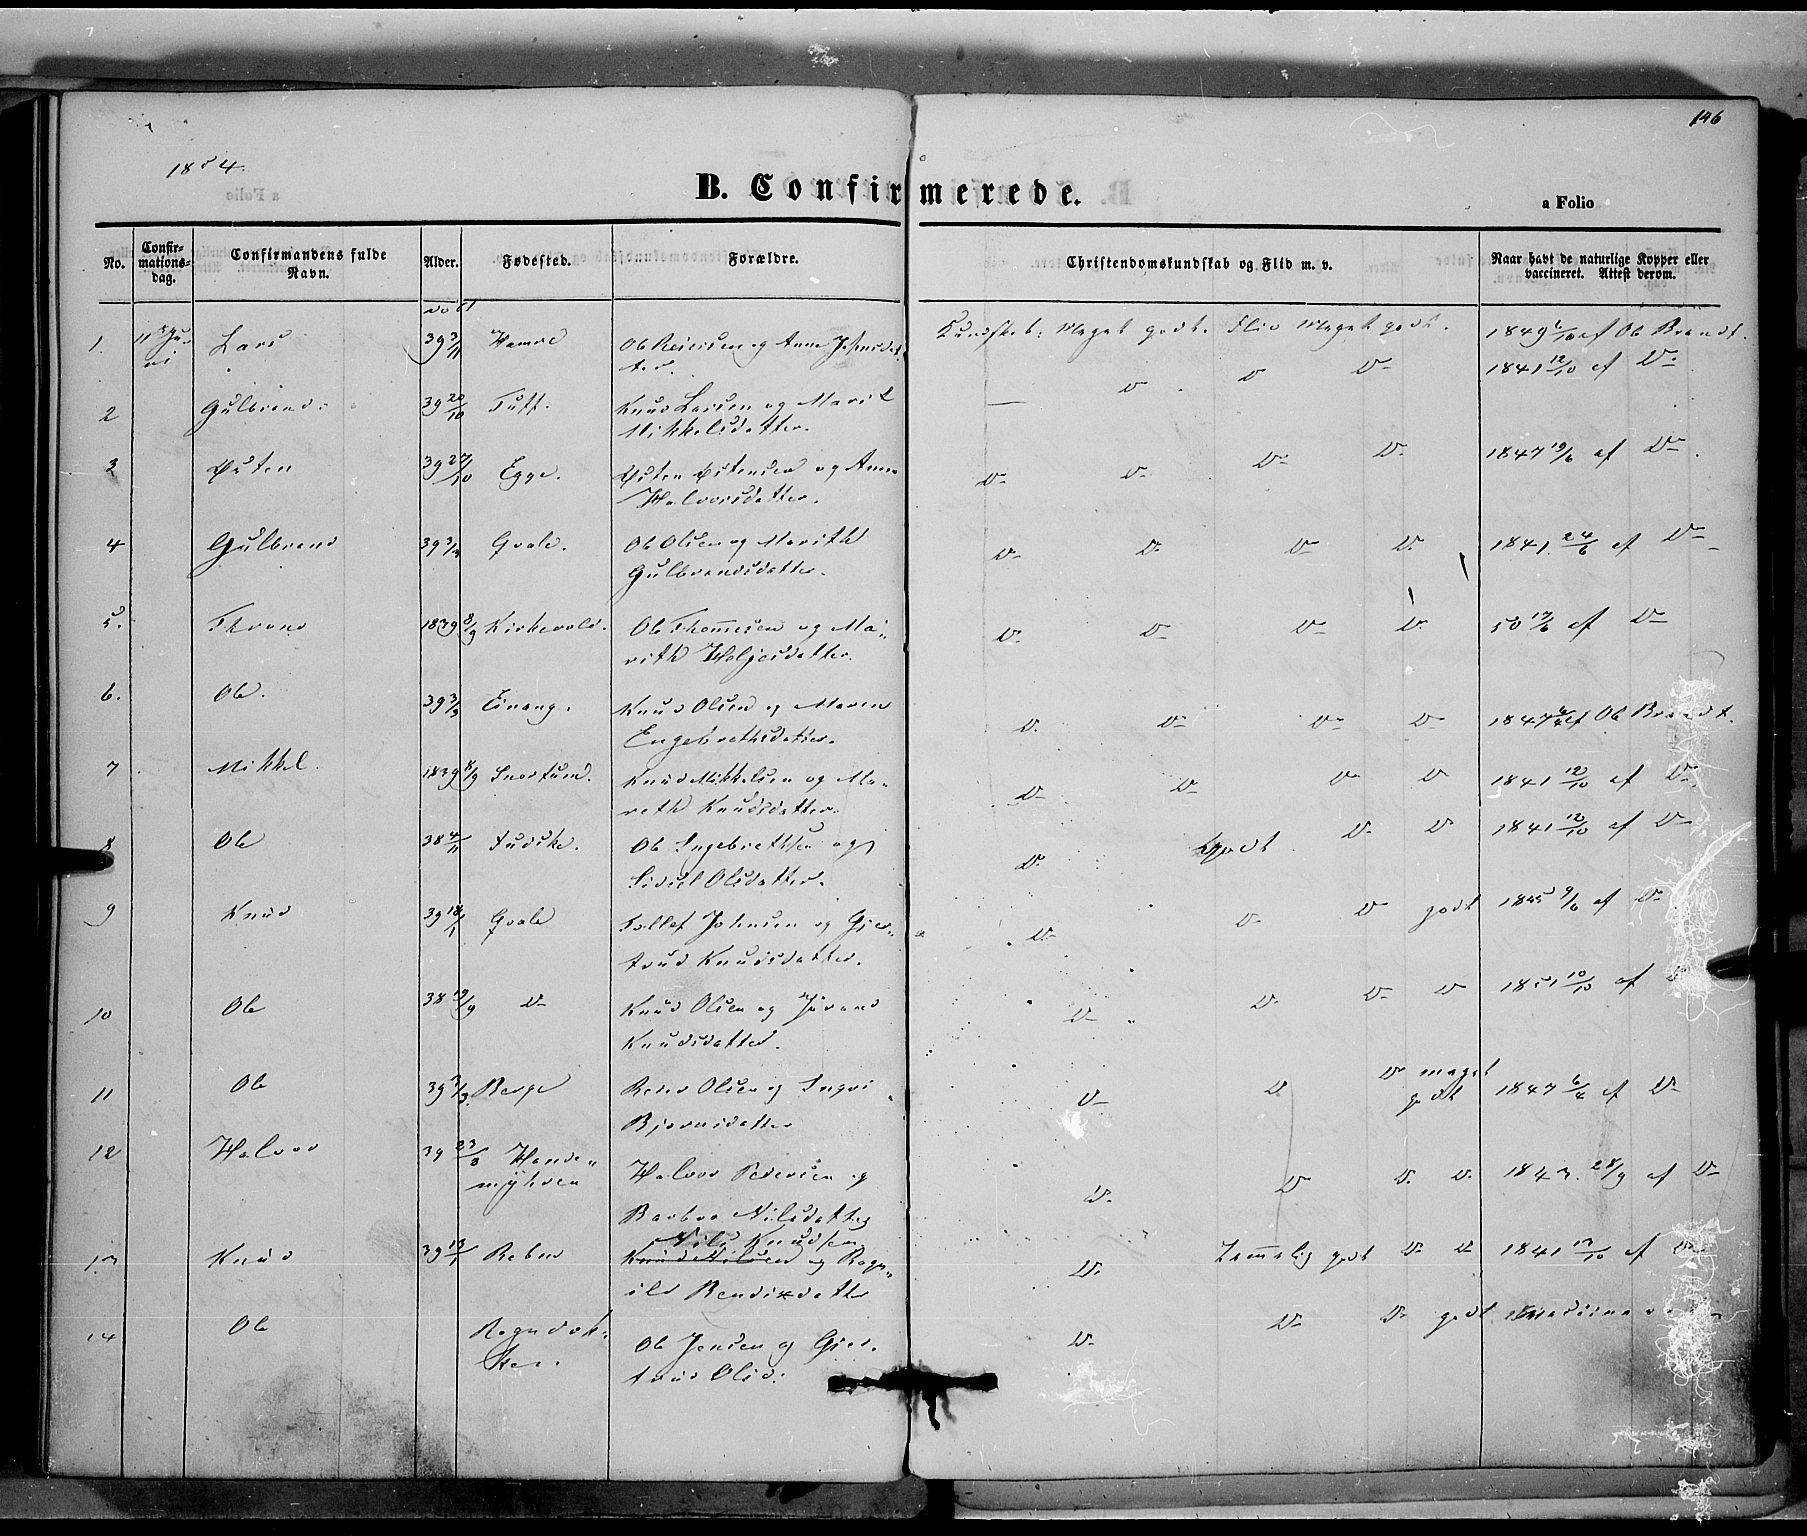 146
1854.
B. Confirmerede.
a Folio
No.
Confir-
mations-
dag.
Confirmandens fulde
Navn.
Alder.
Fødested.
Forældre.
Christendomskundskab og Flid m. v.
Naar havt de naturlige Kopper eller
vaccineret. Attest derom.
1. 11 Ju- Lars 39 3/11 Ole og Anne
ni
Kundskab: Meget godt. Flid Meget godt. 1849 af Ole Brandt.
2 Gulbrand. 39 20/10 Tuff. Knud Larsen og Marit D D D 1841 12/10 af D
Mikkelsdatter.
3 Østen 39 27/10 Egge. Østen Østensen og Anne D D D D 1847 19/6 af D
Halvorsdatter.
4 Gulbrand 39 Qvale. Ole Olsen og Marith D D D D 1841. 24/6 af D
Gulbrandsdatter.
5. Thrond 1839 8/9 Kirkevold. Ole Thomesen og Ma- D D D D 50 17/6 af D
rith Heljesdatter.
6. Ole. 39 3/3 Einang. Knud Olsen og Maren D D D D 1847 af Ole Brandt.
Engebrethsdatter.
7 Mikkel. 1839 8/9 Knud Mikkelsen og Ma- D D D D 1841 12/10 af D
reth Knudsdatter.
8 Ole 38 4/11 Ole Ingebrethsen og D godt. D D 1841 12/10 af D
Sidsel Olsdatter.
9 Knud 39 18/1 Qvale Tollef Johnsen og Gjer- D D D godt 1845 9/6 af D
trud Knudsdatter.
10 Ole 38 19/9 D Knud Olsen og Jørand D D D D 1851 10/10 af D
Knudsdatter.
11 Ole 39 3/3. Berge Olsen og Ingri D D D meget
godt 1847 6/4 af D
Bjørnsdatter
12 Halvor 39 23/8 Halvor Pedersen og D D D D 1843. 28/9 af D
Barbro Nilsdatter
Nils Knudsen
13 Knud 39 13/1 Knud Nilsen og Ragn- D Temmelig godt D D 1841 12/10 af D
ild Bendixdatter
14 Ole Rogndok-
ken. Ole Jensen og Gjer- D D D godt
trud Olsd: